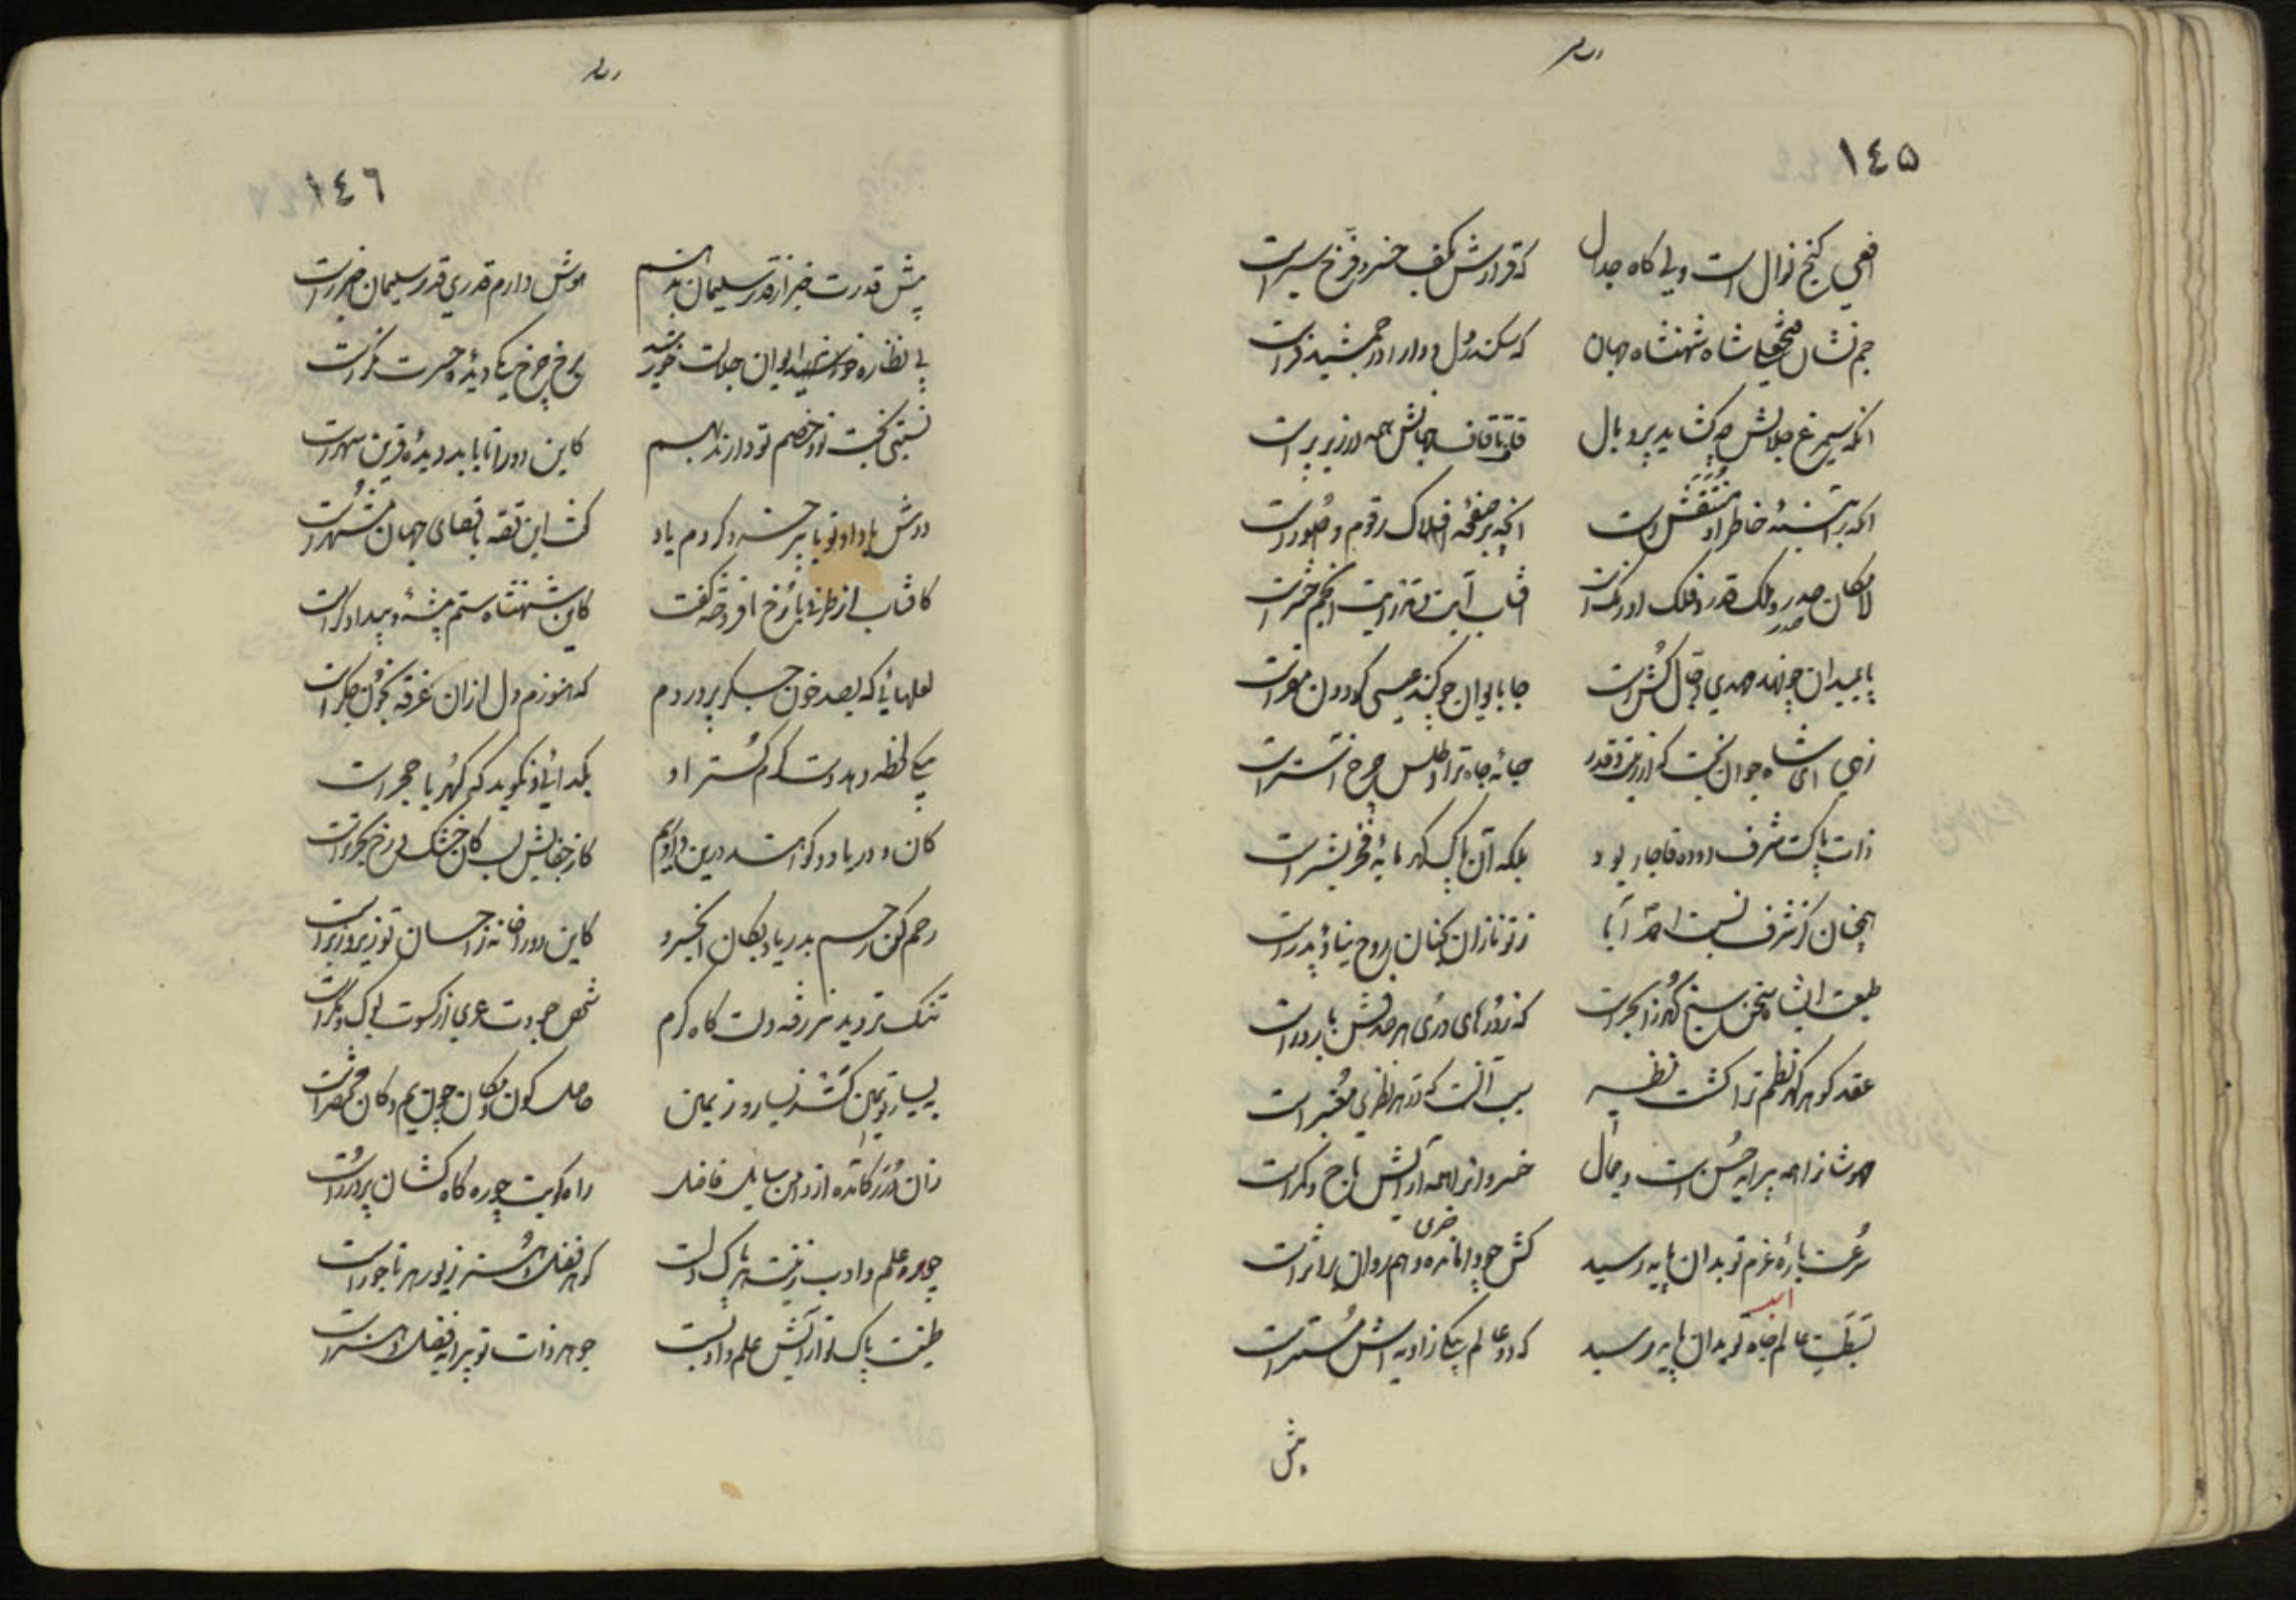 ١٤٥
افعی گنج نوال است ولی گاه جدال که قرارش بکف خسرو فرخ سیر است
جم نشان فتحعلیشاه شهنشاه جهان که سکندر دل و دارا در و جمشید فر است
آنکه سیمرغ جلالش چو گشاید پر و بال قاف تا قاف جهانش همه در زیر پر است
آنکه بر آینهٔ خاطر او منتقش است آنچه بر صفحهٔ افلاک رقوم و صور است
لامکان صدر و ملک قدر و فلک اورنگ است آفتاب آیت و مه رایت و انجم حشر است
پا بمیدان چو نهد مهدی دجال کش است جا بایوان چو کند عیسی گردون مقر است
زهی ای شاه جوان بخت که از رفعت و قدر جامهٔ جاه ترا اطلس چرخ آستر است
ذات پاکت شرف دودهٔ قاجار بود بلکه آن پاک گهر مایهٔ فخر بشر است
همچنان کز شرف نسبت احمد آبا ز تو نازان بجنان روح نیا و پدر است
طبعت ای شاه سخن سنج گهرزا بحر است که ز درهای دری هر صدفش بارور است
عقد گوهر گهر نظم ترا گشت نظیر سبب آنست که در هر نظری معتبر است
مهوشانرا همه پیرایه حسن است و جمال خسروانرا همه آرایش تاج و کمر است
سرعت بارهٔ عزم تو بدان پایه رسید کش چو وامانده و هم روان بر اثر است
خری
اسد
بسطت عالم جاه تو بدان پایه رسید که دو عالم بیکی زاویه اش مستتر است
پیش
١٤٦
پیش قدرت خبر از قدر سلیمان ندهم هوش دارم قدری قدر سلیمان خبر است
پی نظارهٔ ایوان جلالت خورشید بر رخ چرخ یکی دیدهٔ حسرت نگر است
نسبتی بخت تو و خصم تو دارند بهم کاین دو را تا بابد دیده قرین سهر است
دوش با داد تو با مهر خسرو کردم یاد کش این قصه باقصای جهان مشتهر است
کافتاب از طرفی با رخ افروخته گفت کاین شهنشاه ستم پیشه و بیدادگر است
لعلهائی که بصد خون جگر پروردم که هنوزم دل ازان غرقه بخون جگر است
بیکی لحظه دهد دست کرم گستر او بگدائی و نگوید که گهر یا حجر است
کان و دریا دو گواهند درین داوریم کز جفایش لب کان خشک و رخ بحر تر است
رحم کن رحم بدریا و بکان ای خسرو کاین دو را خانه ز احسان تو زیر و زبر است
تنگ تر دید ز هر رقعه دلت گاه کرم شخص جودت عری از کسوت بوک و مگر است
به یسار تو یمین گشته یسار و ز یمین حاصل کون و مکان چون یم و کان مختصر است
زان درر کآمده از دامن سایل فاضل راه کویت چو ره کاهکشان پر درر است
جوهر علم و ادب زینت هر پاک دلست گوهر فضل و هنر زیور هر تاجور است
طینت پاک تو آرایش علم و ادبست جوهر ذات تو پیرایه فضل و هنر است